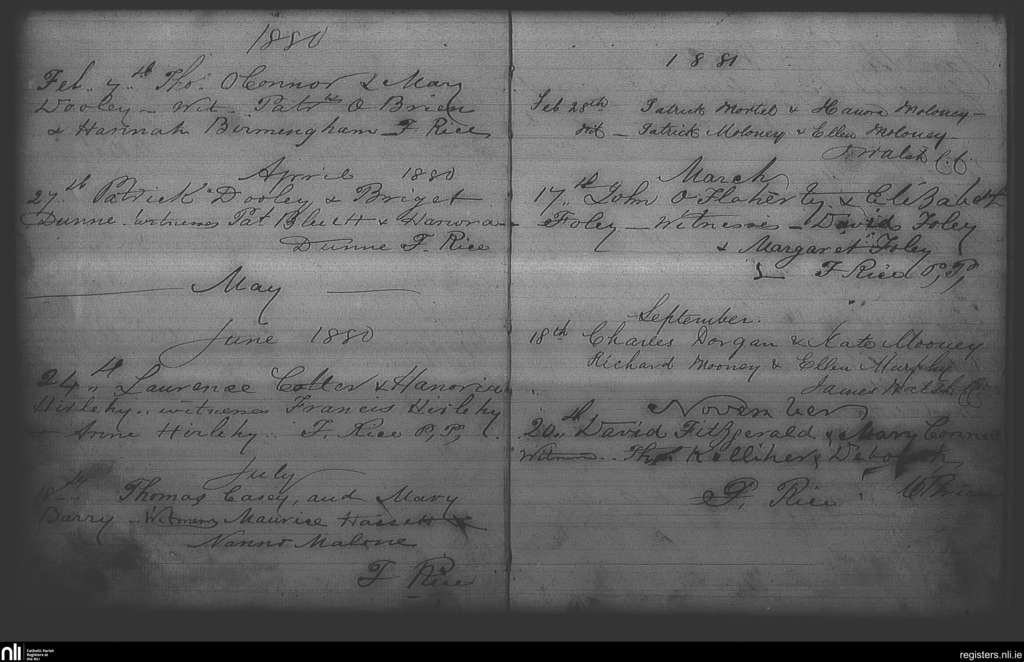 1880
Feb. 7th Tho. OConnor & Mary
Dooley - Wit. Patk O Brien
& Hannah Birmingham F Rice
April 1880
27th Patrick Dooley & Briget
Dunne Witness Pat Bluett & Hanora
Dunne F. Rice
May
June 1880
24th Laurence Cotter & Hanoria
Hirlehy.. witness Francis Hirlehy
Anne Hirlehy.. F. Rice P,P,
July
18th Thomas Casey, and Mary
Barry - Witness Maurice Hassett &
Nanno Malone
F Rice
1881
Feb 28th Patrick Mortel & Hanora Moloney -
Wit - Patrick Moloney & Ellen Moloney -
J Walsh C.C.
March
17th John O Flaherty & Elizabeth
Foley - Witnesses - David Foley
& Margaret Foley
F Rice P,P,
September.
18th Charles Dorgan & Kate Mooney
Richard Mooney & Ellen Murphy
James Walsh CC
November
20th David FitzGerald & Mary Connor
Witness - Thos Kelliher & Deborah
F. Rice O'Brien
nli Catholic Parish Registers at the NLI
registers.nli.ie